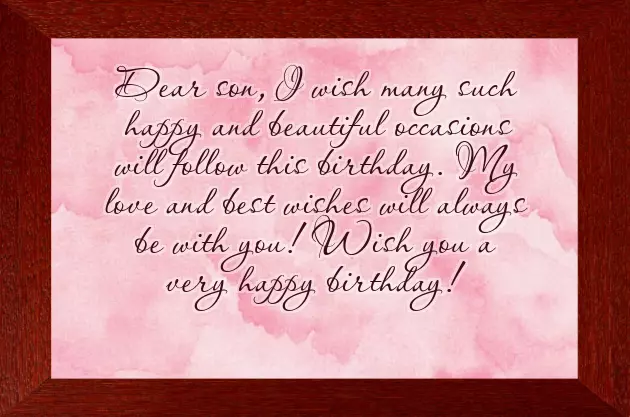 Dear son, I wish many such
happy and beautiful occasions
will follow this birthday. My
love and best wishes will always
be with you! Wish you a
very happy birthday!